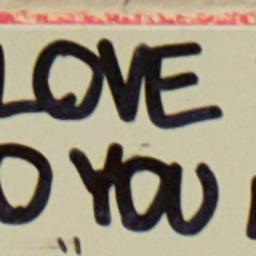 LOVE
O YOU
"